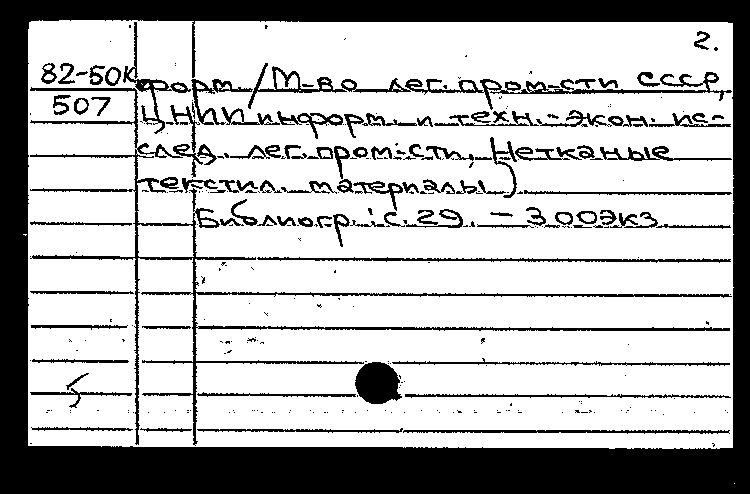 2.
82-50к форм. / М-во лег. пром-сти СССР,
507 ЦНИИ информ. и техн.-экон. ис-
след. лег. пром-сти, Нетканые
текстил. материалы).
Библиогр.: с. 29. – 300 экз.